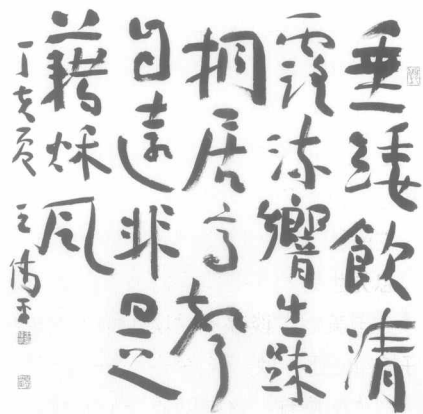 垂緌飲清
露流響出疎
桐居高聲
自遠非是
藉秋風
丁亥夏 王偉平